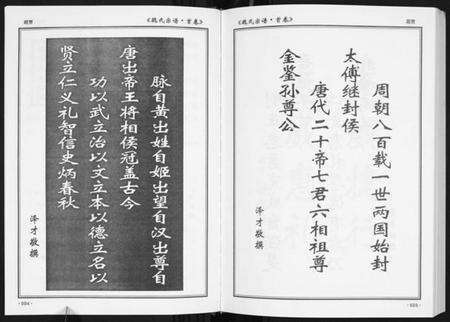 《魏氏宗谱·首卷》
脉自黄出姓自姬出望自汉出尊自
唐出帝王将相侯冠盖古今
功以武立治以文立本以德立名以
贤立仁义礼智信史炳春秋
泽才敬撰
《魏氏宗谱·首卷》
周朝八百载一世两国始封
太傅继封侯
唐代二十帝七君六相祖尊
金鉴孙尊公
泽才敬撰